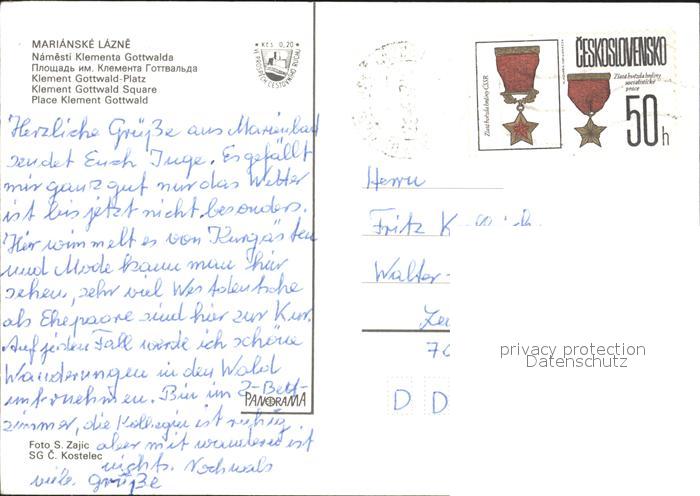 MARIÁNSKÉ LÁZNĚ
Náměstí Klementa Gottwalda
Площадь им. Клемента Готтвальда
Klement Gottwald-Platz
Klement Gottwald Square
Place Klement Gottwald
* Kčs 0,20 *
VE PROSPĚCH CESTOVNÍHO RUCHU
Herzliche Grüße aus Marienbad
sendet Euch Inge. Es gefällt
mir ganz gut nur das Wetter
ist bis jetzt nicht besonders.
Hier wimmelt es von Kurgästen
und Mode kann man hier
sehen, sehr viel Westdeutsche
als Ehepaare sind hier zur Kur.
Auf jeden Fall werde ich schöne
Wanderungen in den Wald
unternehmen. Bin im 2-Bett-
zimmer, die Kollegin ist richtig,
aber mit wandern ist
nichts. Nochmals
viele Grüße
PANORAMA
Foto S. Zajíc
SG Č. Kostelec
Zlatá hvězda hrdiny ČSSR
ČESKOSLOVENSKO
Zlatá hvězda hrdiny
socialistické
práce
50 h
Herrn
Fritz K
Walter-
Ze
7
D D
privacy protection
Datenschutz